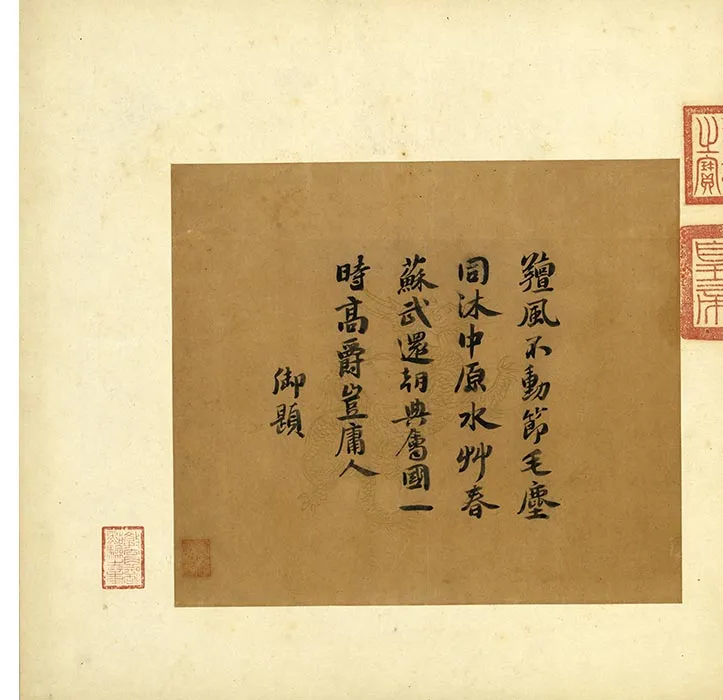 羶風不動節毛塵
同沐中原水艸春
蘇武還朝典屬國一
時高爵豈庸人
御題
之寶
皇帝